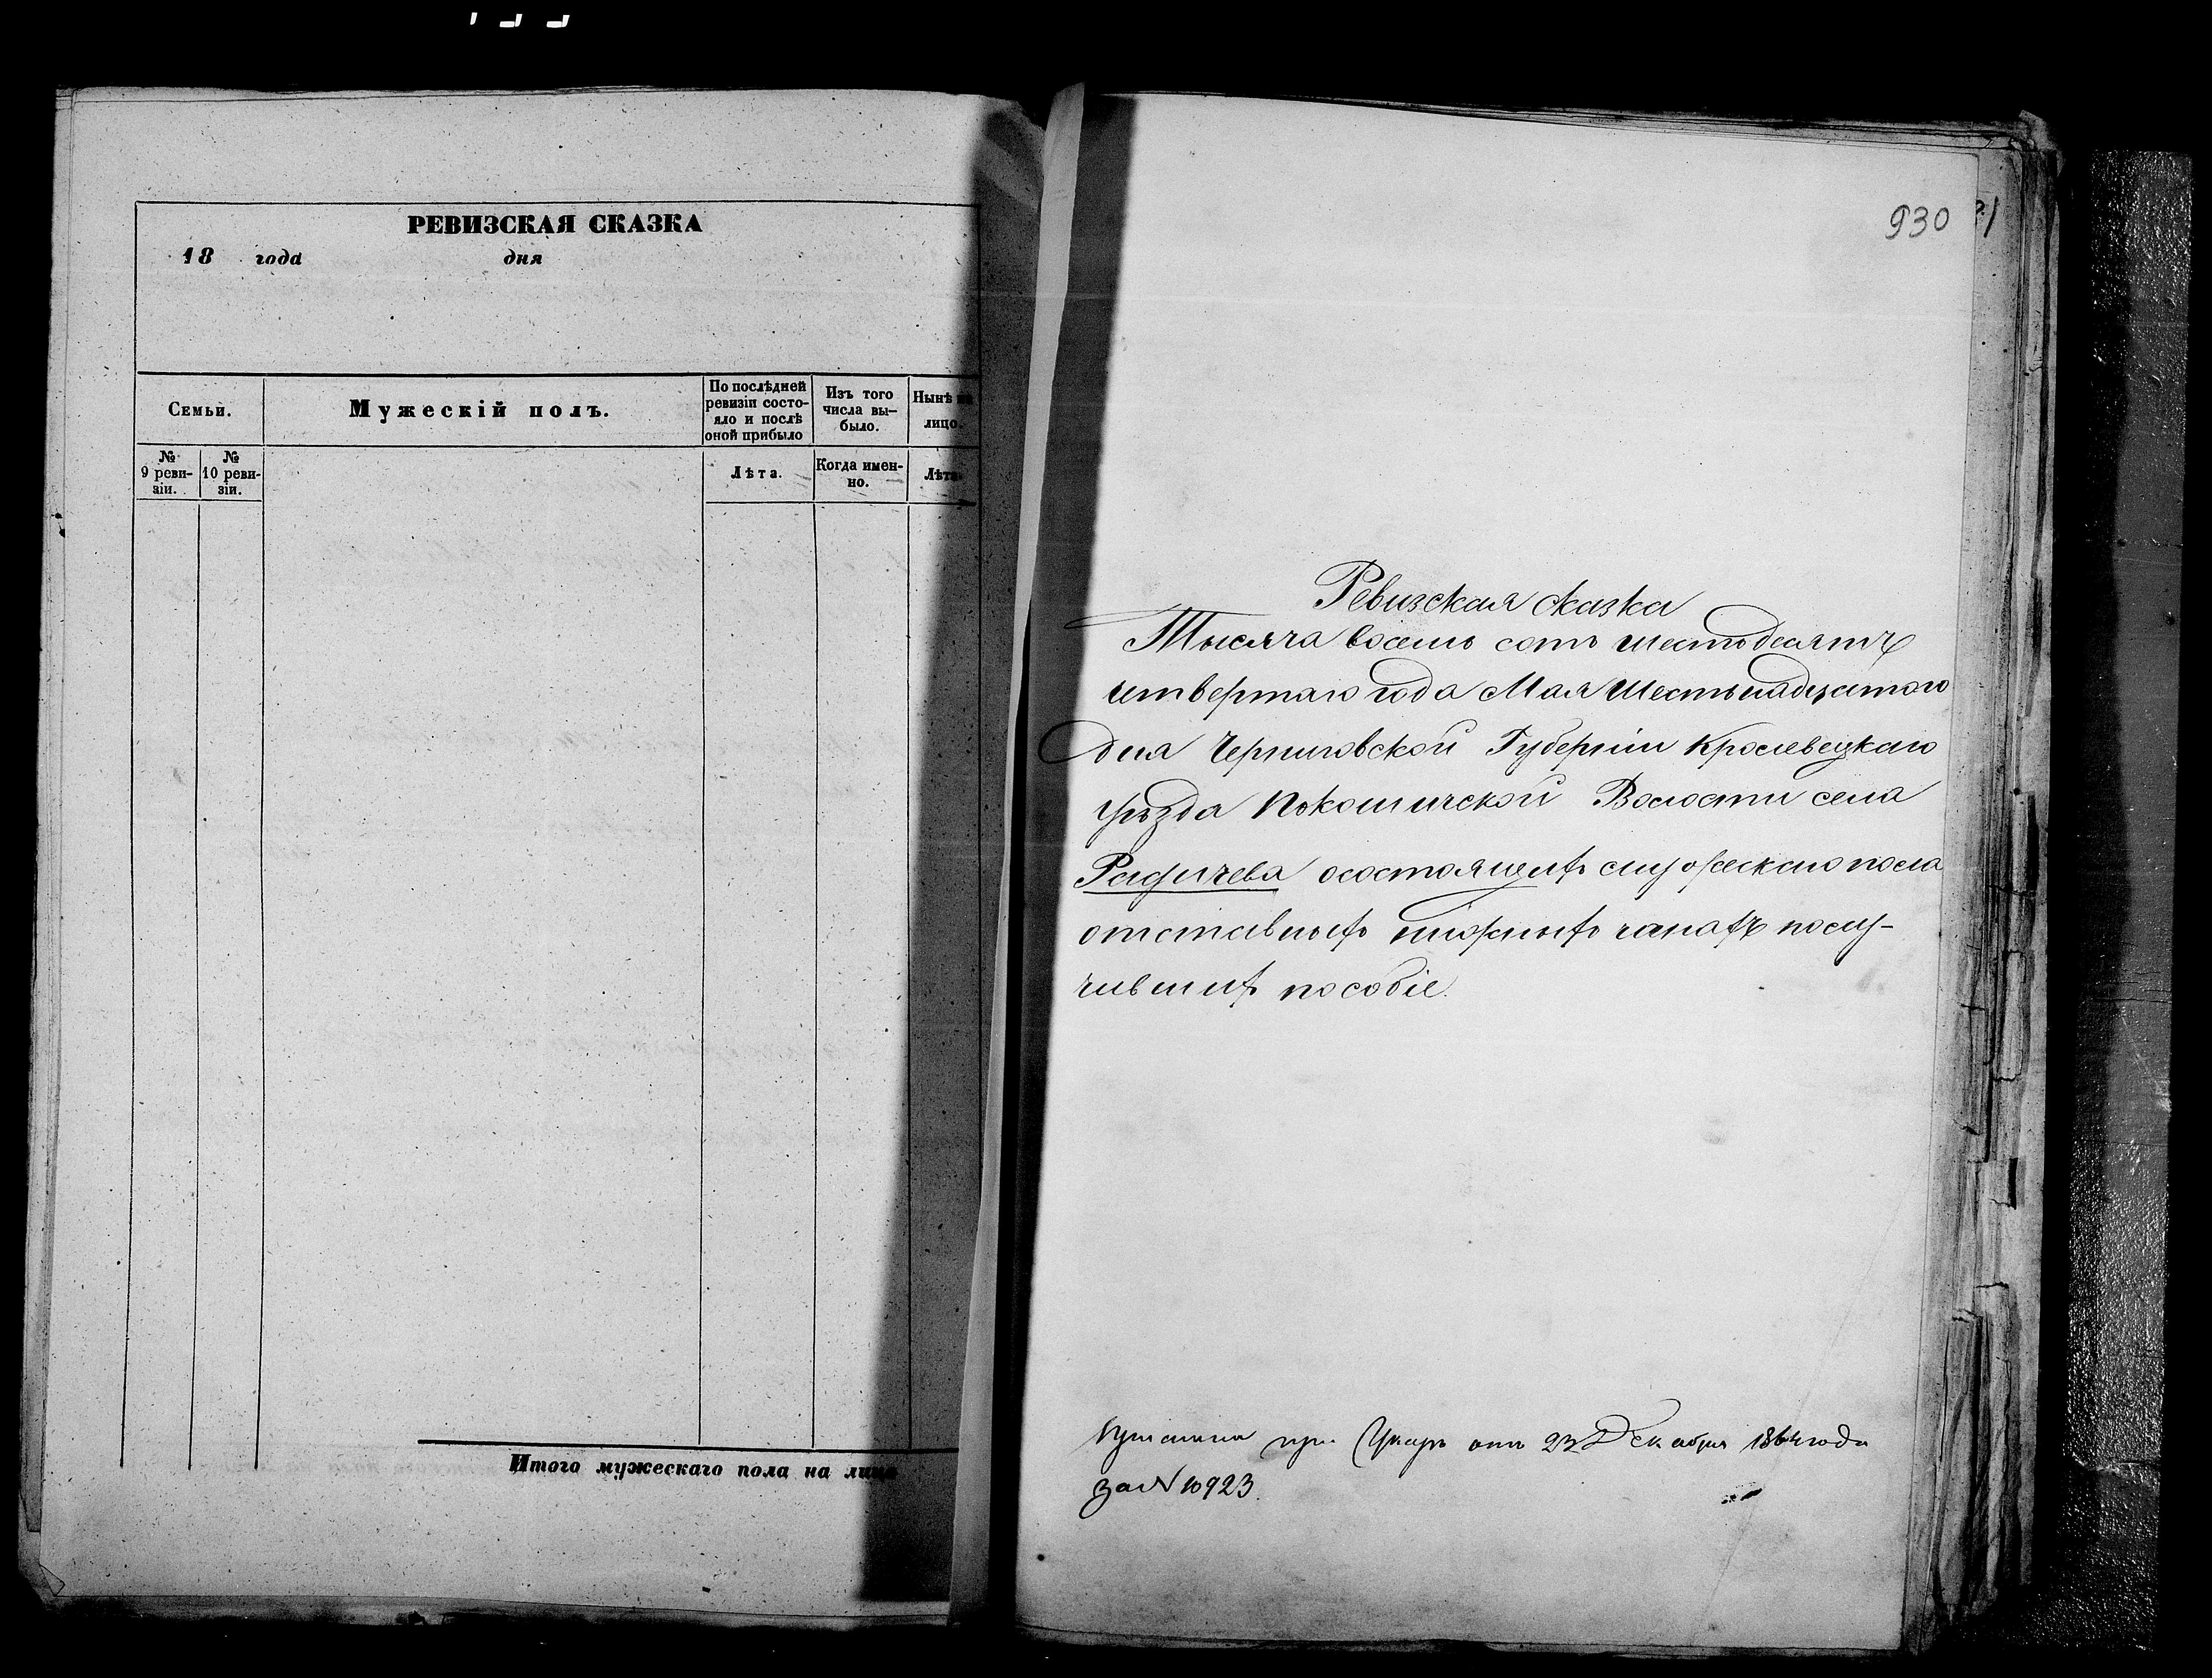 РЕВИЗСКАЯ СКАЗКА
18 года дня
Семьи.
Мужескій полъ.
По послѣдней
ревизіи состо-
яло и послѣ
оной прибыло
Изъ того
числа вы-
было.
Нынѣ на
лицо.
№
9 реви-
зіи.
№
10 реви-
зіи.
Лѣта.
Когда имен-
но.
Лѣта.
Итого мужескаго пола на лицо
930
Ревизская сказка
Тысяча восемь сотъ шестьдесятъ
четвертаго года Мая Шестьнадцатого
дня Черниговской Губерніи Кролевецкаго
уѣзда Покошичской Волости села
Радичева осостоящихъ мужескаго пола
отставныхъ нижныхъ чинахъ полу-
чившихъ пособіе.
при отъ 23 Декабря 1864 года
за N 10923.